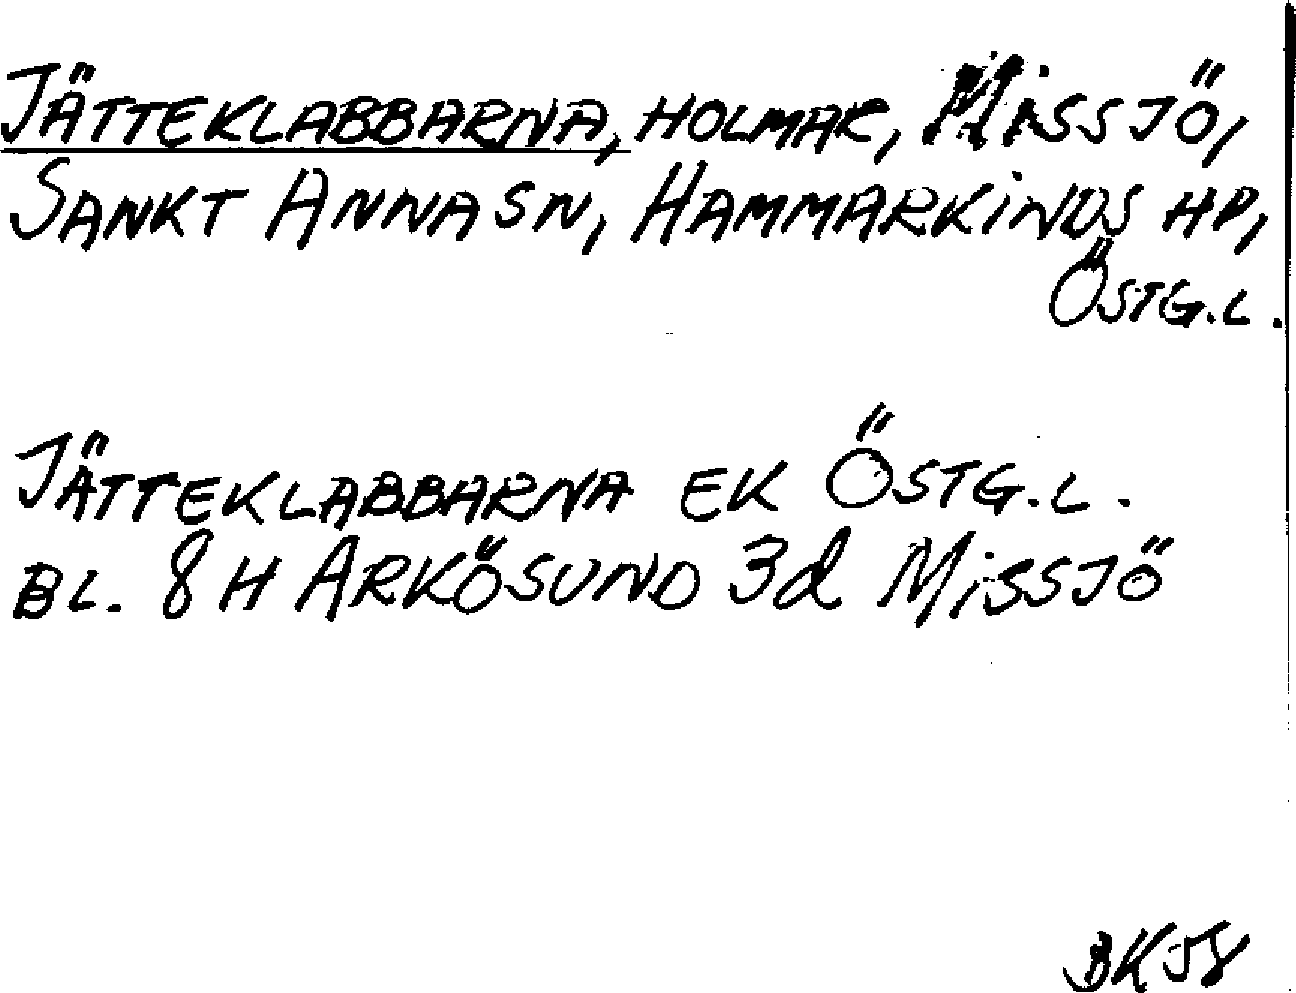 JÄTTEKLABBARNA, HOLMAR, MISSJÖ,
SANKT ANNA SN, HAMMARKINDS HD,
ÖSTG.L.
JÄTTEKLABBARNA EK ÖSTG.L.
BL. 8H ARKÖSUND 3d MISSJÖ
BK58